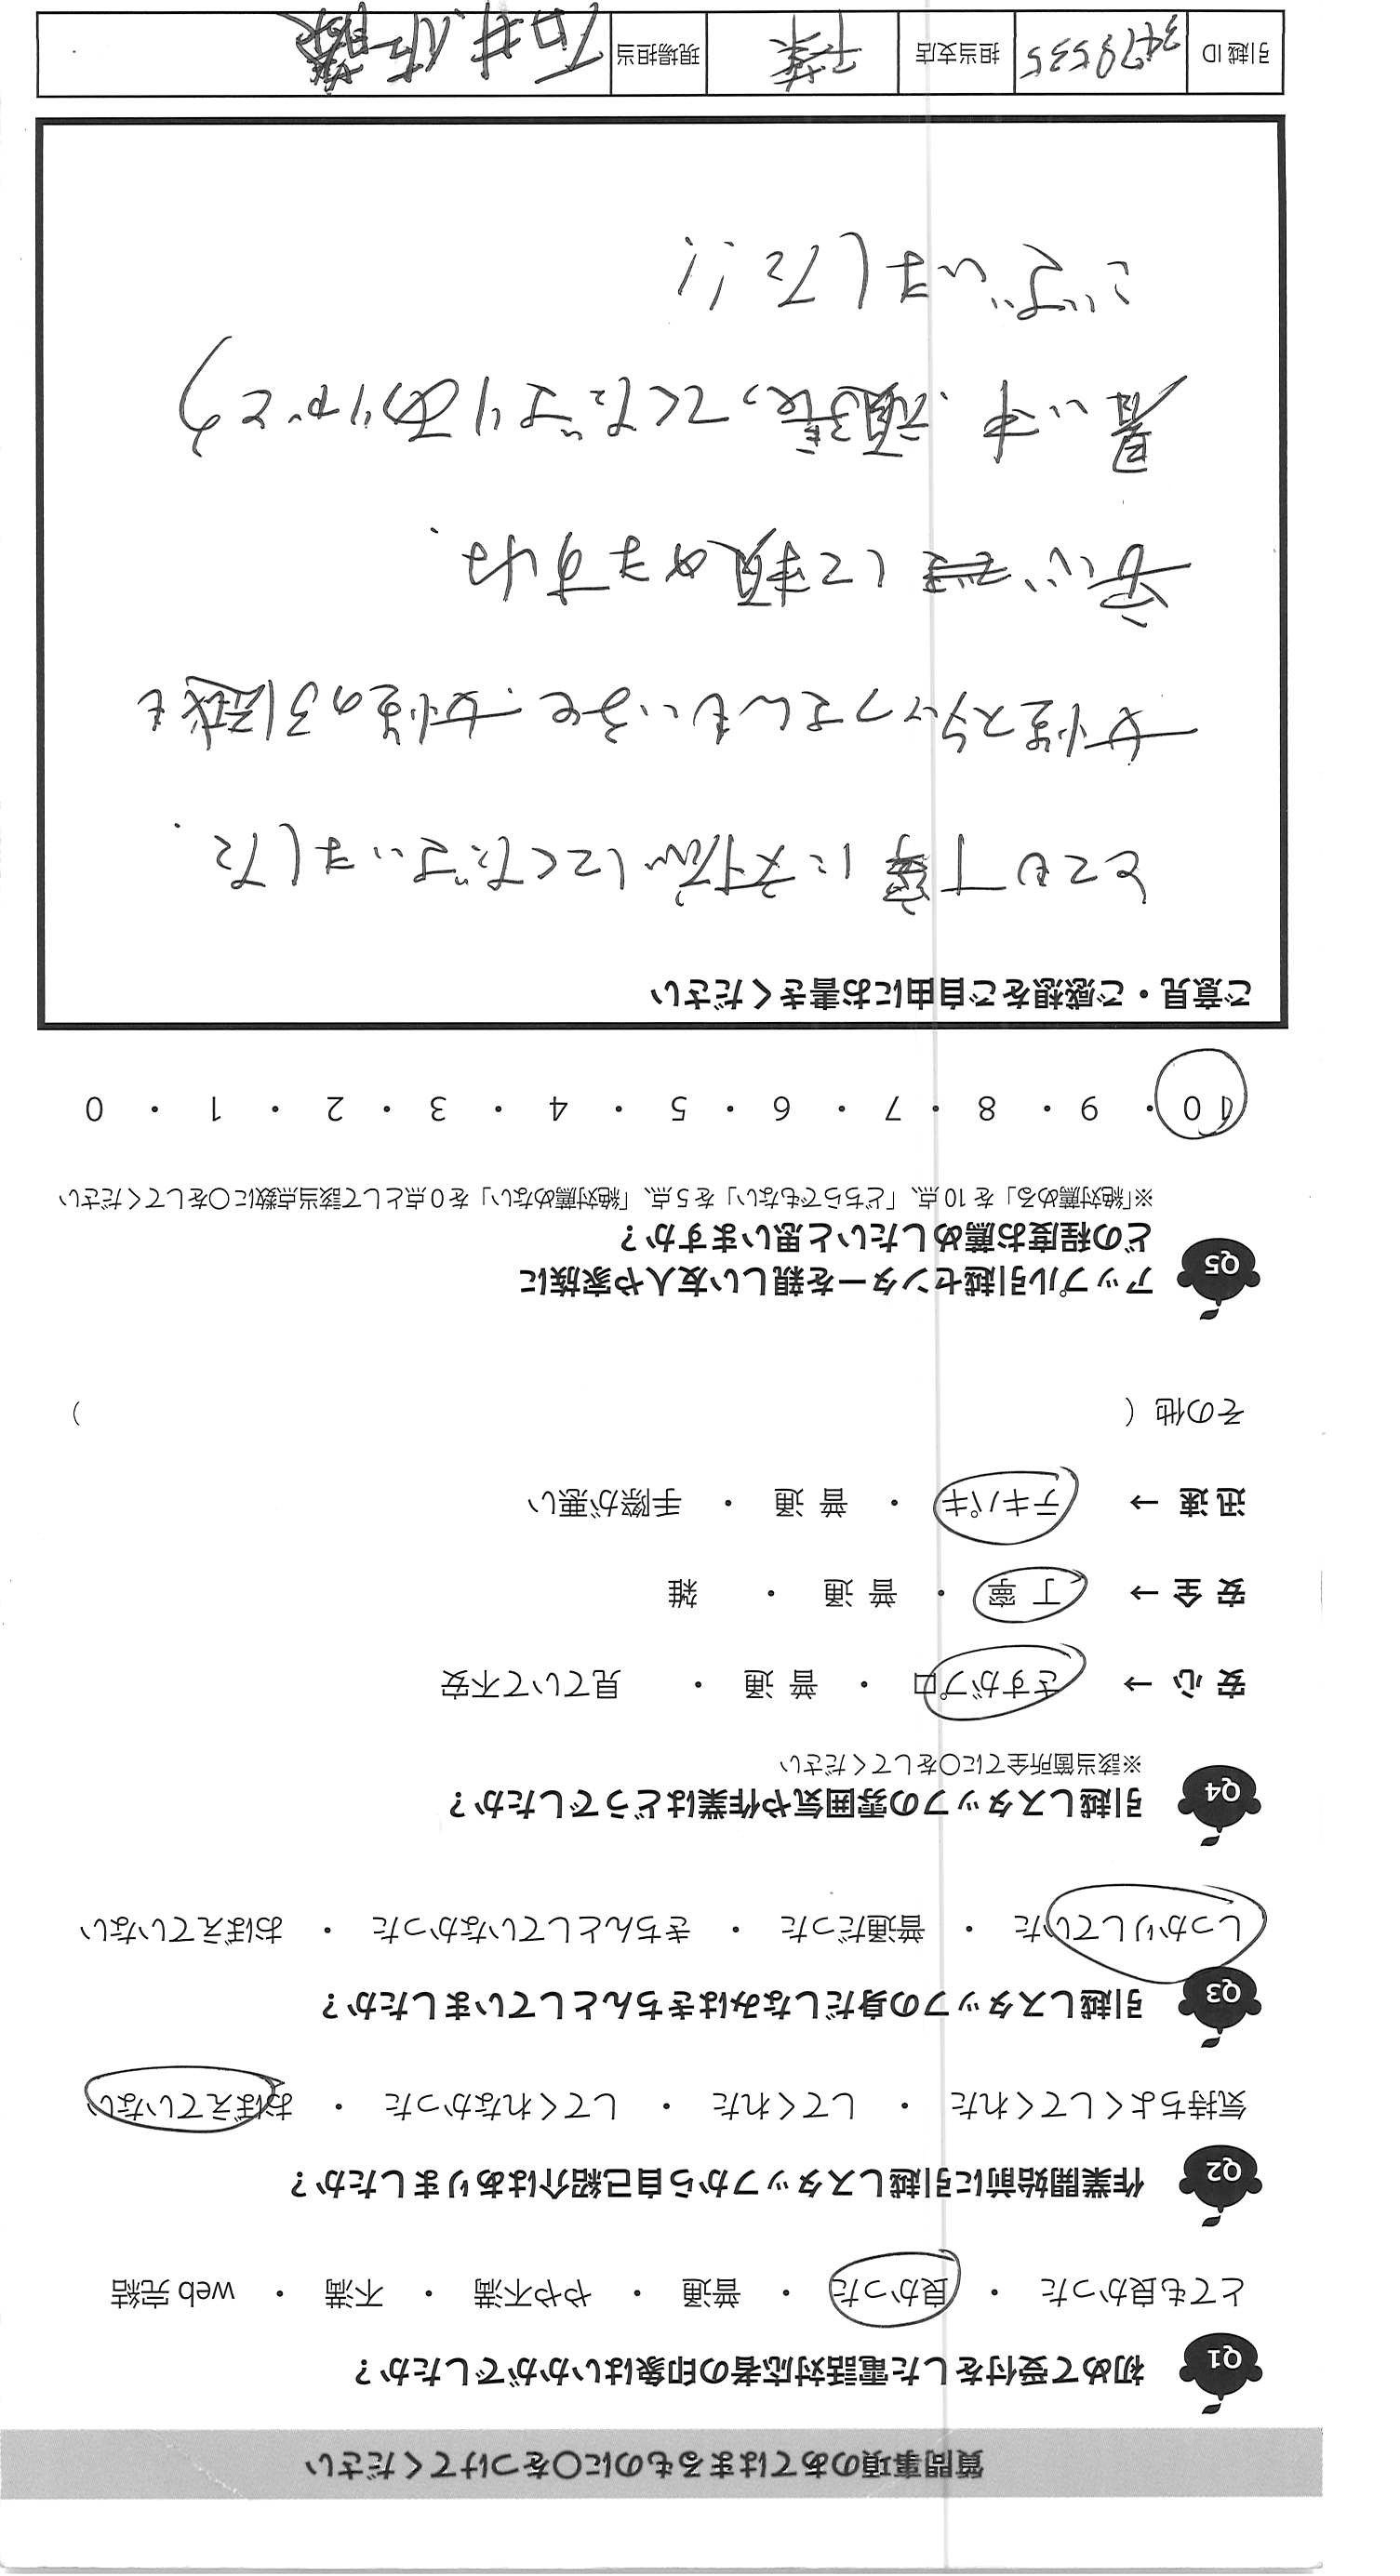 質問事項のあてはまるものに〇をつけてください
Q1 初めて受付をした電話対応者の印象はいかがでしたか？
とても良かった ・ 良かった ・ 普通 ・ やや不満 ・ 不満 ・ web 完結
Q2 作業開始前に引越しスタッフから自己紹介はありましたか？
気持ちよくしてくれた ・ してくれた ・ してくれなかった ・ おぼえていない
Q3 引越しスタッフの身だしなみはきちんとしていましたか？
しっかりしていた ・ 普通だった ・ きちんとしていなかった ・ おぼえていない
Q4 引越しスタッフの雰囲気や作業はどうでしたか？
※該当箇所全てに〇をしてください
安 心 → さすがプロ ・ 普 通 ・ 見ていて不安
安 全 → 丁 寧 ・ 普 通 ・ 雑
迅 速 → テキパキ ・ 普 通 ・ 手際が悪い
その他（ ）
Q5 アップル引越センターを親しい友人や家族に
どの程度お薦めしたいと思いますか？
※「絶対薦める」を 10 点、「どちらでもない」を 5 点、「絶対薦めない」を 0 点として該当点数に〇をしてください
10 ・ 9 ・ 8 ・ 7 ・ 6 ・ 5 ・ 4 ・ 3 ・ 2 ・ 1 ・ 0
ご意見・ご感想をご自由にお書きください
とても丁寧に対応してくださいました.
女性スタッフさんもいると.女性の引越も
安心して頼めますね.
暑い中.頑張ってくださりありがとう
ございました!!
引越 ID 3479535 担当支店 千葉 現場担当 石井.佐藤